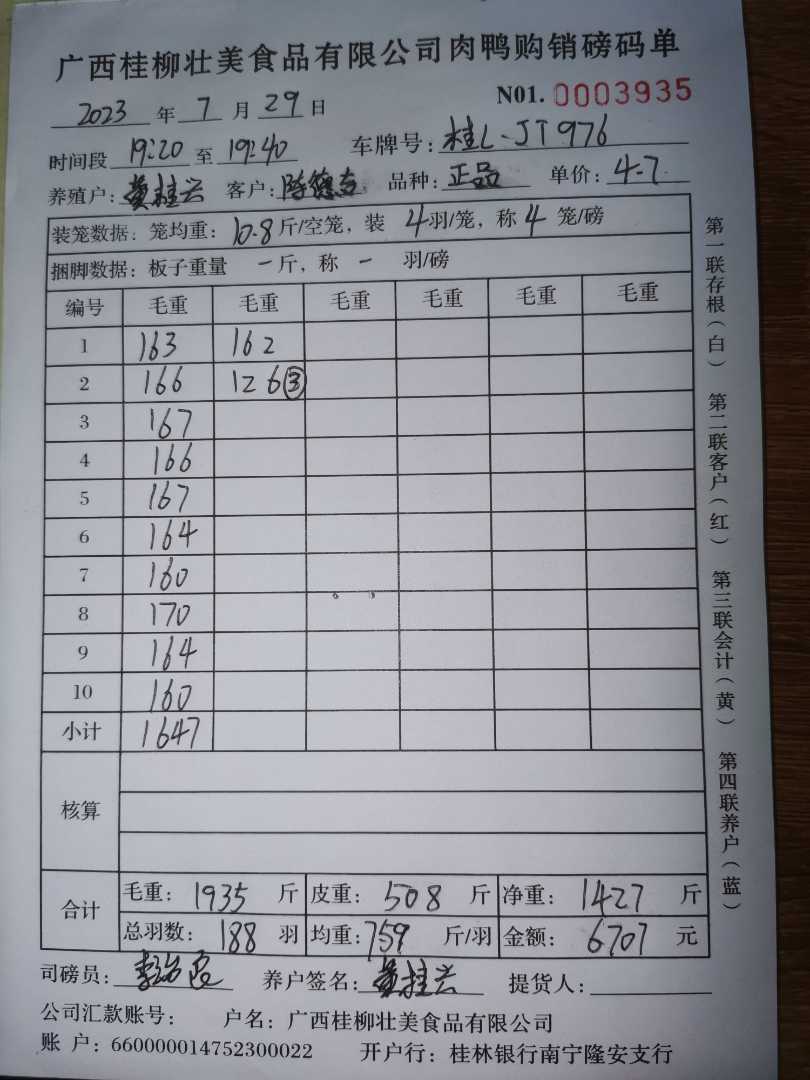 广西桂柳壮美食品有限公司肉鸭购销磅码单
2023 年 7 月 29 日 N01. 0003935
时间段 19:20 至 19:40 车牌号: 桂L-JT976
养殖户: 黄桂兴 客户: 陈德 品种: 正品 单价: 4.7
装笼数据: 笼均重: 10.8 斤/空笼, 装 4 羽/笼, 称 4 笼/磅
捆脚数据: 板子重量 一 斤, 称 一 羽/磅
编号 毛重 毛重 毛重 毛重 毛重 毛重
1 163 162
2 166 126③
3 167
4 166
5 167
6 164
7 160
8 170
9 164
10 160
小计 1647
核算
合计 毛重: 1935 斤 皮重: 508 斤 净重: 1427 斤
总羽数: 188 羽 均重: 759 斤/羽 金额: 6707 元
司磅员: 李 养户签名: 黄桂兴 提货人:
公司汇款账号: 户名: 广西桂柳壮美食品有限公司
账 户: 660000014752300022 开户行: 桂林银行南宁隆安支行
第一联存根(白) 第二联客户(红) 第三联会计(黄) 第四联养户(蓝)